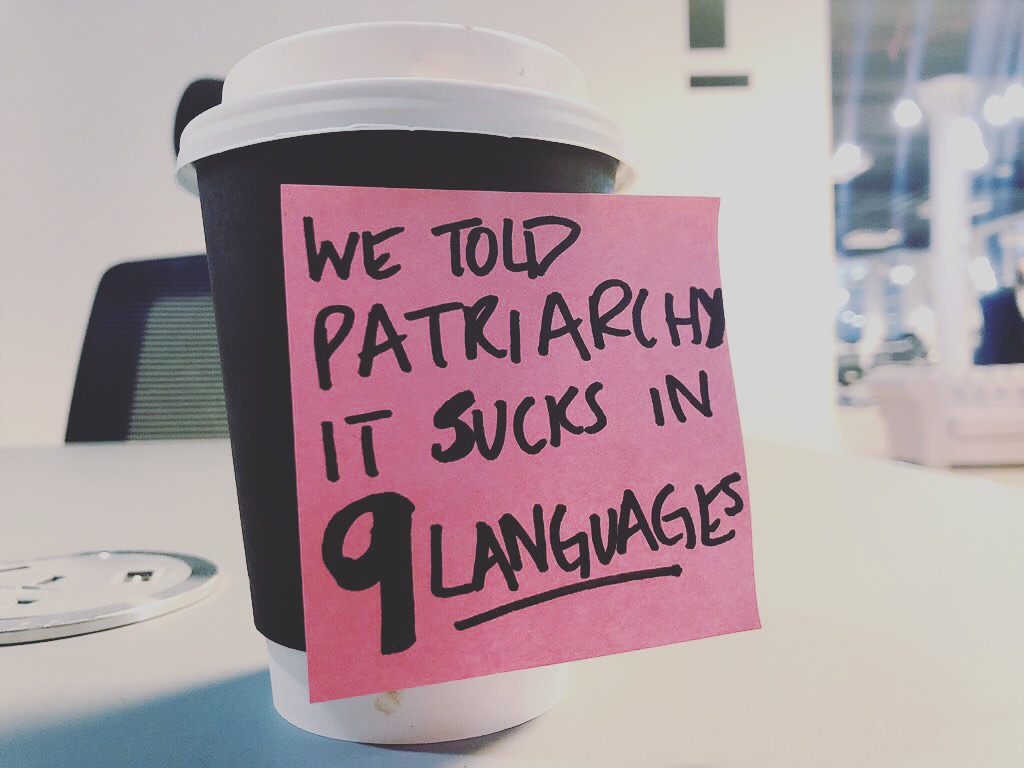 WE TOLD
PATRIARCHY
IT SUCKS IN
9 LANGUAGES